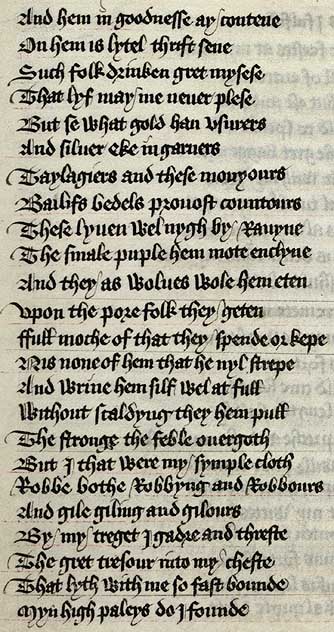 And hem in goodnesse ay conteue
On hem is lytel thrift sene
Such folk drinken gret mysese
That lyf may me neuer plese
But se what gold han vsurers
And siluer eke in garners
Taylagiers and these monyours
Bailifs bedels prouost countours
These lyuen wel nygh by Rauyne
The smale puple hem mote enclyne
And they as wolues wole hem eten
Vpon the pore folk they geten
ffull moche of that they spende or kepe
Nis none of hem that he nyl strepe
And wrine hem silf wel at full
Without scaldyng they hem pull
The stronge the feble ouergoth
But I that were my symple cloth
Robbe bothe Robbyng and Robbours
And gile giling and gilours
By my treget I gadre and threste
The gret tresour into my cheste
That lyth with me so fast bounde
Myn high paleys do I founde